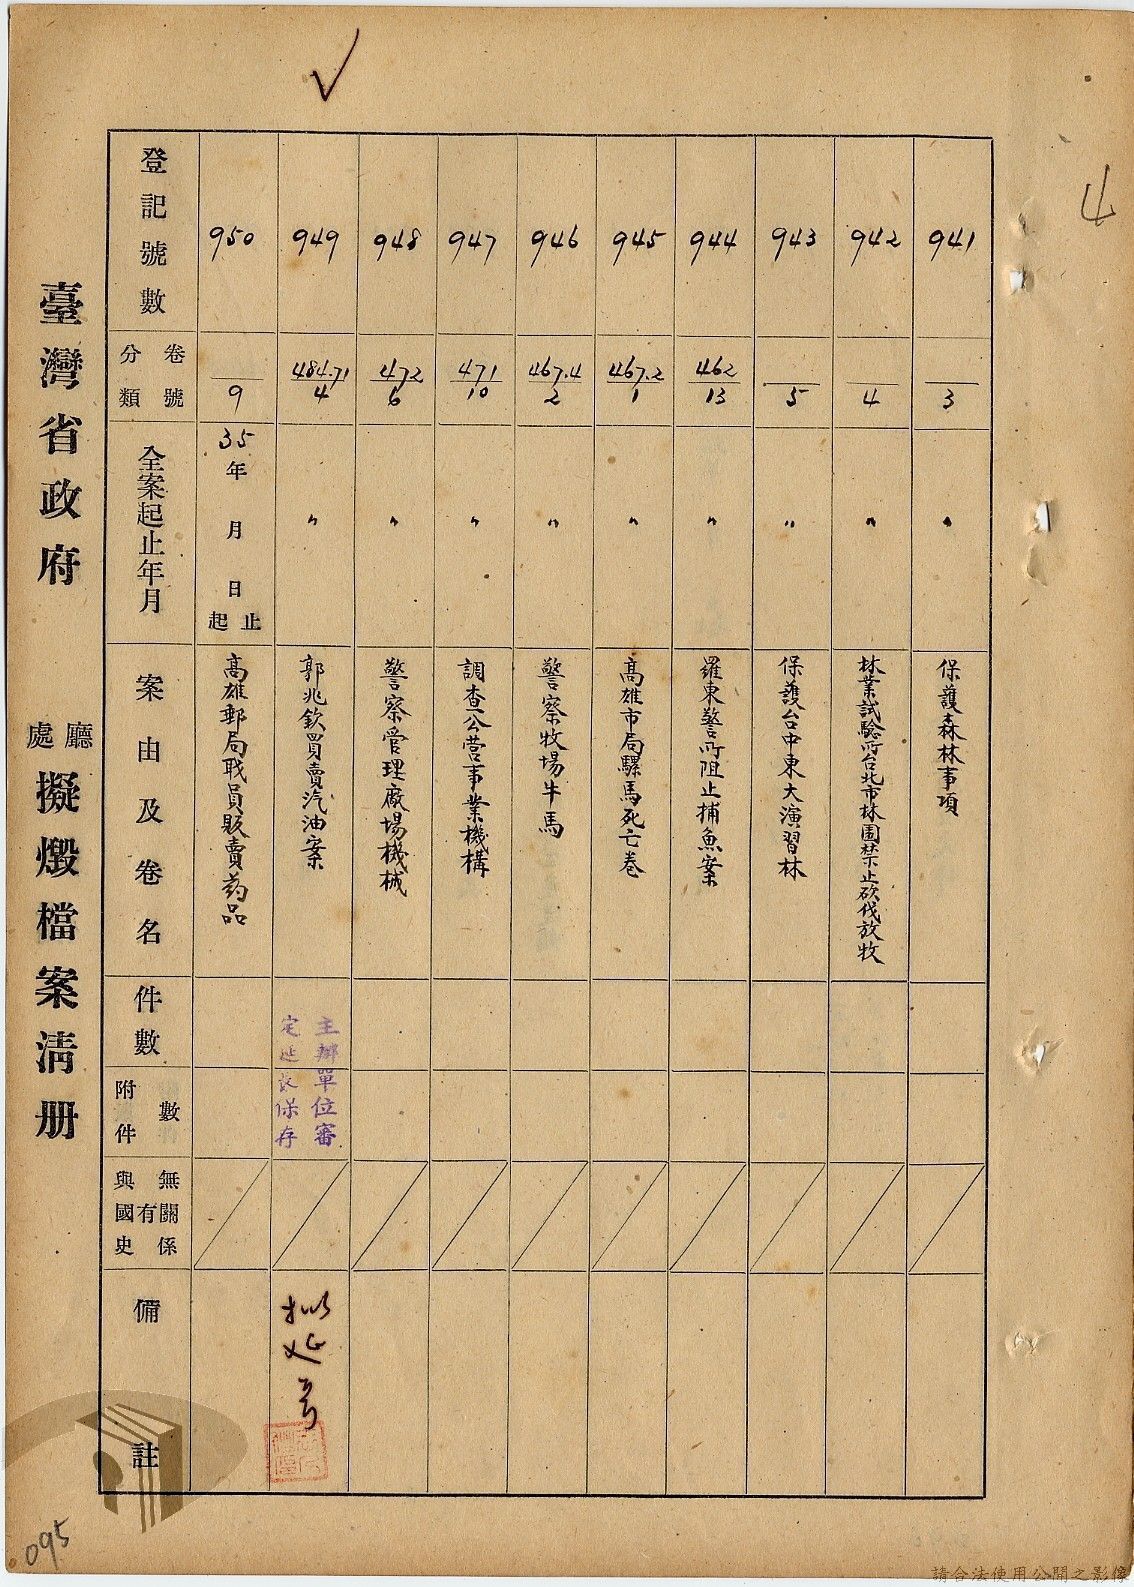 臺灣省政府 廳處 擬燬檔案清册
登記號數
卷號 分類
全案起止年月
案由及卷名
件數
附件數
與國史有無關係
備註
950
9
35年 月 日 起止
高雄郵局職員販賣药品
949
484.71
4
〃
郭兆欽買賣汽油案
主辦單位審
定延長保存
948
472
6
〃
警察管理廠場機械
947
471
10
〃
調查公营事業機構
946
467.4
2
〃
警察牧場牛馬
945
467.2
1
〃
高雄市局騾馬死亡卷
944
462
13
〃
羅東警所阻止捕魚案
943
5
〃
保護台中東大演習林
942
4
〃
林業試驗所台北市林園禁止砍伐放牧
941
3
〃
保護森林事項
4
095
請合法使用公開之影像